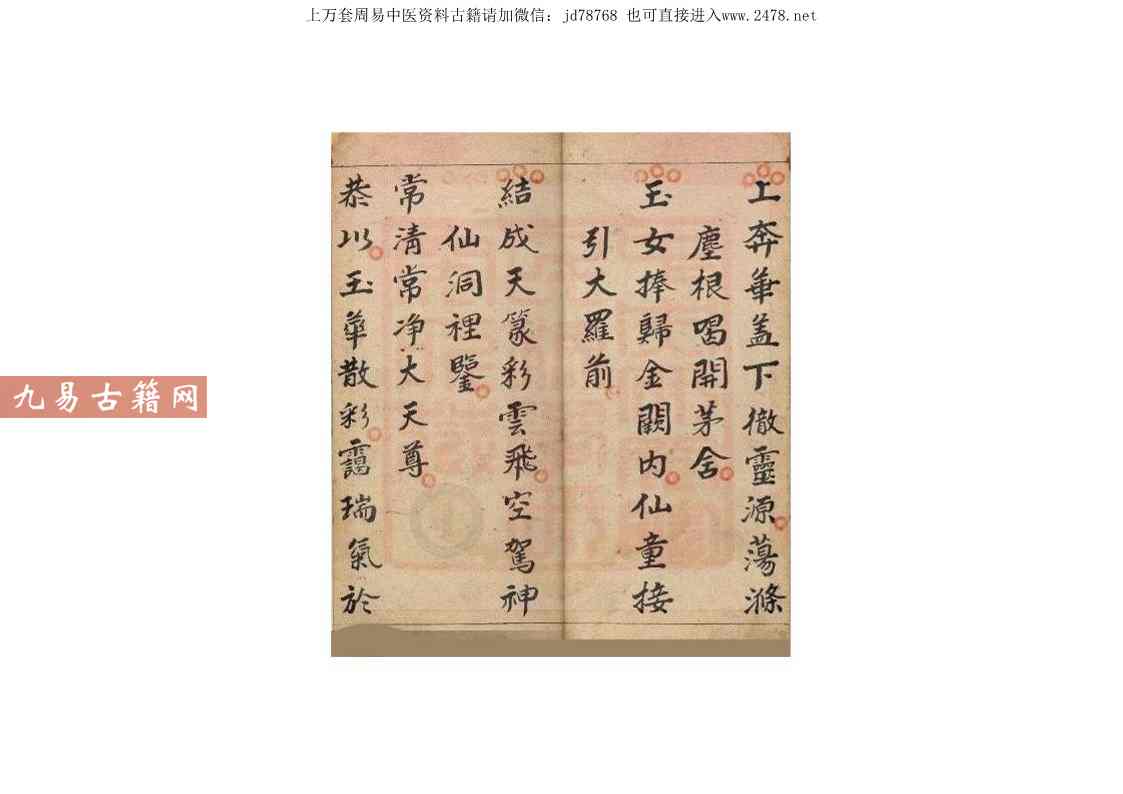 上万套周易中医资料古籍请加微信：jd78768 也可直接进入www.2478.net
上奔華盖下徹靈源蕩滌
塵根喝開茅舍
玉女捧歸金闕内仙童接
引大羅前
結成天篆彩雲飛空駕神
仙洞裡鑒
常清常净大天尊
恭以玉華散彩靄瑞氣於
九易古籍网